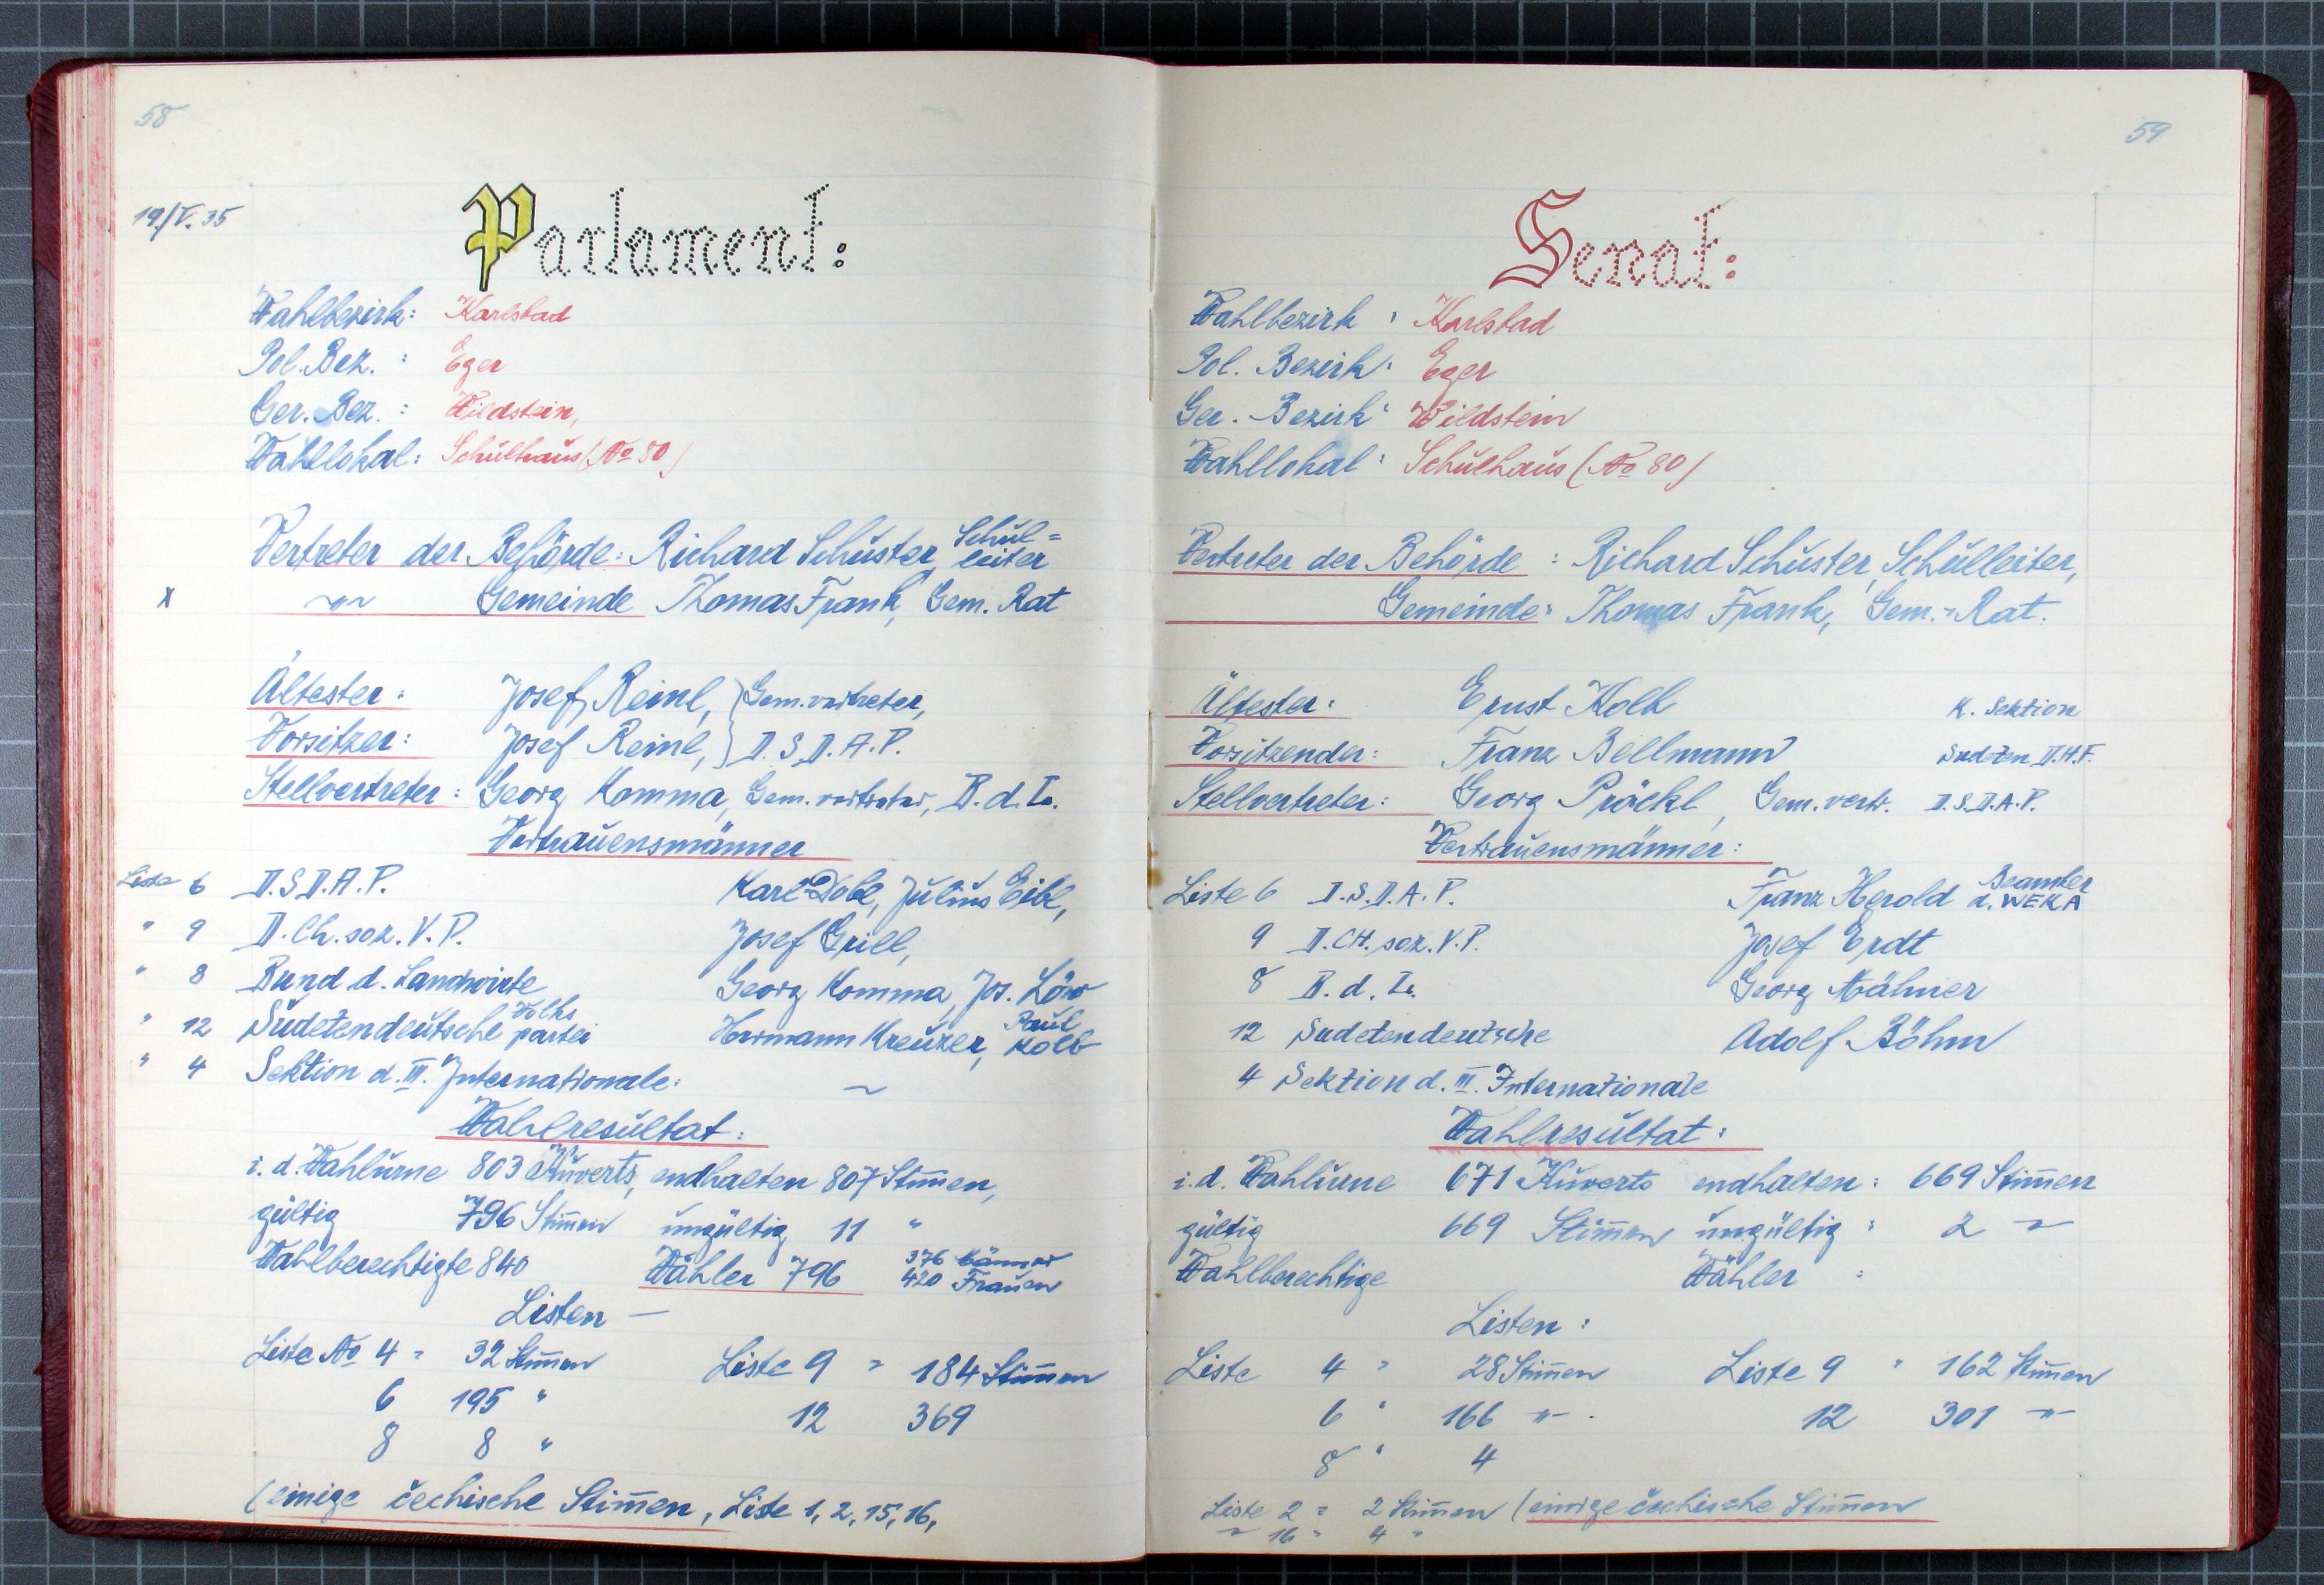 58
19./V. 35
Parlament:
Wahlbezirk: Karlsbad
Pol. Bez. : Eger
Ger. Bez. : Wildstein,
Wahllokal: Schulhaus (No 80)
Vertreter der Behörde: Richard Schuster, Schul=
leiter
x Gemeinde Thomas Frank, Gem. Rat
Ältester: Josef Reinl, } Gem. vertreter,
Vorsitzer: Josef Reinl, } D.S.D.A.P.
Stellvertreter: Georg Komma, Gem. vertreter, B.d.L.
Vertrauensmänner
Liste 6 D.S.D.A.P. Karl Dobl, Julius Eibl,
" 9 D.Ch.soz.V.P. Josef Grill,
" 8 Bund d. Landwirte Georg Komma, Jos. Löw
" 12 Sudetendeutsche Volks
partei Hermann Kreuzer, Paul
Kolb
" 4 Sektion d. III. Internationale: ~
Wahlresultat:
i. d. Wahlurne 803 Kuverts, endhalten 807 Stimmen,
gültig 796 Stimmen ungültig 11 "
Wahlberechtigte 840 Wähler 796 376 Männer
420 Frauen
Listen —
Liste No 4 = 32 Stimmen Liste 9 = 184 Stimmen
6 195 " 12 369
8 8 "
(einige čechische Stimmen, Liste 1, 2, 15, 16,
59
Senat:
Wahlbezirk : Karlsbad
Pol. Bezirk: Eger
Ger. Bezirk: Wildstein
Wahllokal: Schulhaus (No 80)
Vertreter der Behörde : Richard Schuster, Schulleiter,
Gemeinde: Thomas Frank, Gem.-Rat.
Ältester: Ernst Kolb K. Sektion
Vorsitzender: Franz Bellmann Sudeten D.H.F.
Stellvertreter: Georg Pröckl, Gem. vertr. D.S.D.A.P.
Vertrauensmänner:
Liste 6 D.S.D.A.P. Franz Herold Beamter
d. WEKA
9 D.CH.soz.V.P. Josef Erdt
8 B.d.L. Georg Wähner
12 Sudetendeutsche Adolf Böhm
4 Sektion d. III. Internationale
Wahlresultat:
i. d. Wahlurne 671 Kuverts endhalten : 669 Stimmen
gültig 669 Stimmen ungültig : 2 "
Wahlberechtige Wähler :
Listen :
Liste 4 " 28 Stimmen Liste 9 " 162 Stimmen
6 " 166 " 12 301 "
8 " 4
Liste 2 = 2 Stimmen (einige čechische Stimmen
" 16 = 4 "